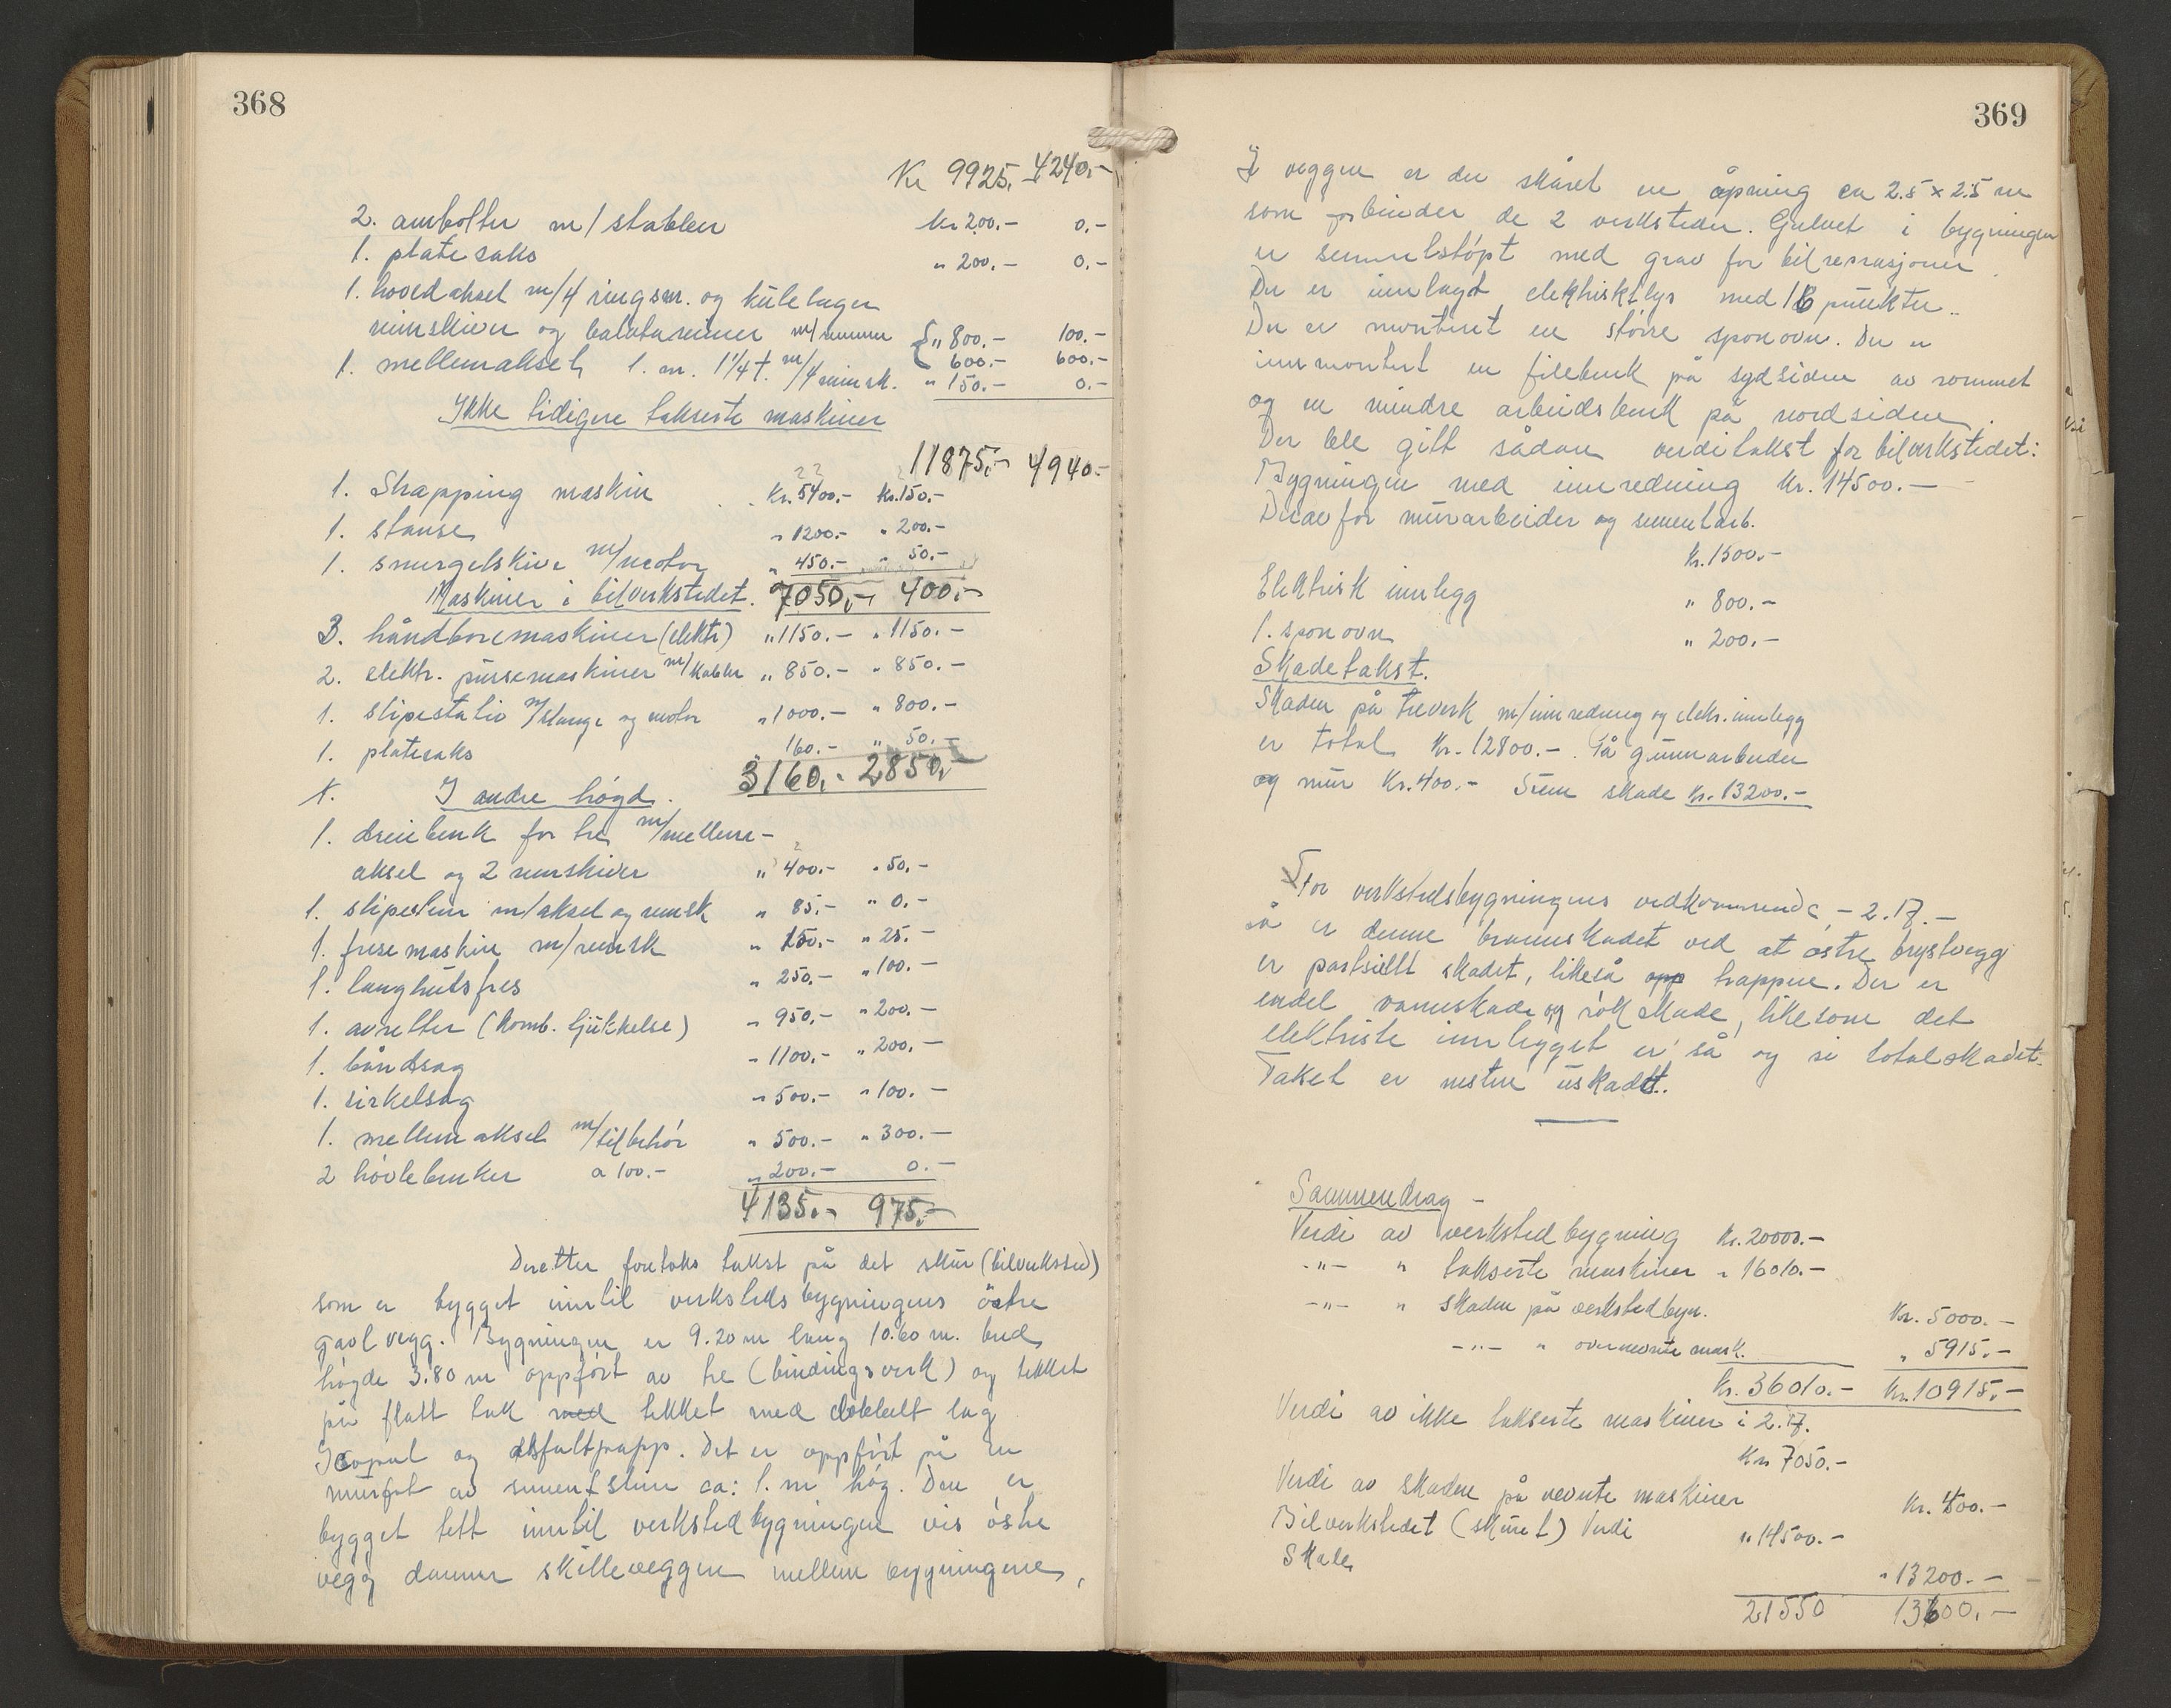 368
Kr 9925.- 4240.-
2. ambolter m/ stabber Kr 200.- 0.-
1. platesaks " 200.- 0.-
1. hovedaksel m/4 ringsm. og kulelager
reimskiver og balatareimer m/ " 800.- 100.-
600.- 600.-
1. mellemaksel, l. m. 1¼ t. m/4 reimsk. " 150.- 0.-
Ikke tidigere takserte maskiner
11875.- 4940.-
1. Shapping maskin Kr. 5400.- Kr. 150.-
1. stanse " 1200.- " 200.-
1. smergelskive m/motor " 450.- " 50.-
Maskiner i bilverkstedet. 7050.- 400.-
3. håndboremaskiner (elektr) " 1150.- " 1150.-
2. elektr. pussemaskiner m/kabler " 850.- " 850.-
1. slipestativ m/slange og motor " 1000.- " 800.-
1. platesaks " 160.- " 50.-
3160.- 2850.-
I andre høgd.
1. dreiebenk for tre m/mellem-
aksel og 2 remskiver " 400.- " 50.-
1. slipestein m/aksel og remsk " 85.- " 0.-
1. fresemaskin m/remsk " 150.- " 25.-
1. langhulsfres " 250.- " 100.-
1. avretter (komb. tjukkelse) " 950.- " 200.-
1. båndsag " 1100.- " 200.-
1. sirkelsag " 500.- " 100.-
1. mellemaksel m/tilbehör " 500.- " 300.-
2 hövlebenker a 100.- " 200.- 0.-
4135.- 975.-
Deretter foretoks takst på det skur (bilverksted)
som er bygget inntil verkstedsbygningens östre
gavlvegg. Bygningen er 9.20 m lang 10.60 m. bred
høgde 3.80 m oppført av tre (bindingsverk) og tekket
på flatt tak med tekket med dobbelt lag
Icopal og asfaltpapp. Det er oppført på en
murfot av sementstein ca: 1. m høg. Den er
bygget tett inntil verkstedbygningen vis östre
vegg danner skilleveggen mellem bygningene,
369
I veggen er der skåret en åpning ca 2.5 x 2.5 m
som forbinder de 2 verksteder. Gulvet i bygningen
er sementstöpt med grav for bilreparasjoner.
Der er innlagt elektrisk lys med 16 punkter.
Der er montert en större sponovn. Der er
innmontert en filebenk på sydsiden av rommet
og en mindre arbeidsbenk på nordsiden.
Der ble gitt sådan verditakst for bilverkstedet:
Bygningen med innredning Kr. 14500.-
Derav for murarbeider og sementarb.
Kr. 1500.-
Elektrisk innlegg " 800.-
1. sponovn " 200.-
Skadetakst.
Skaden på treverk m/innredning og elekr. innlegg
er total Kr. 12800.-. På grunnarbeider
og mur Kr. 400.- Sum skade Kr. 13200.-
For verkstedsbygningens vedkommende, - 2. 17.-
så er denne brannskadet ved at østre brystvegg
er partsiellt skadet, likeså opp trappen. Der er
endel vannskade og rökskade, likesom det
elektriske innlegget er så og si totalskadet.
Taket er nesten uskadt.
Sammendrag -
Verdi av verkstedbygning Kr. 20000.-
-"- " takserte maskiner " 16010.-
-"- " skaden på verkstedbygn. Kr. 5000.-
-"- " overnevnte mask. " 5915.-
Kr. 36010.- Kr. 10915.-
Verdi av ikke takserte maskiner i 2. 17.
Kr. 7050.-
Verdi av skaden på nevnte maskiner Kr. 400.-
Bilverkstedet (skuret) Verdi " 14500.-
Skade " 13200.-
21550 13600.-